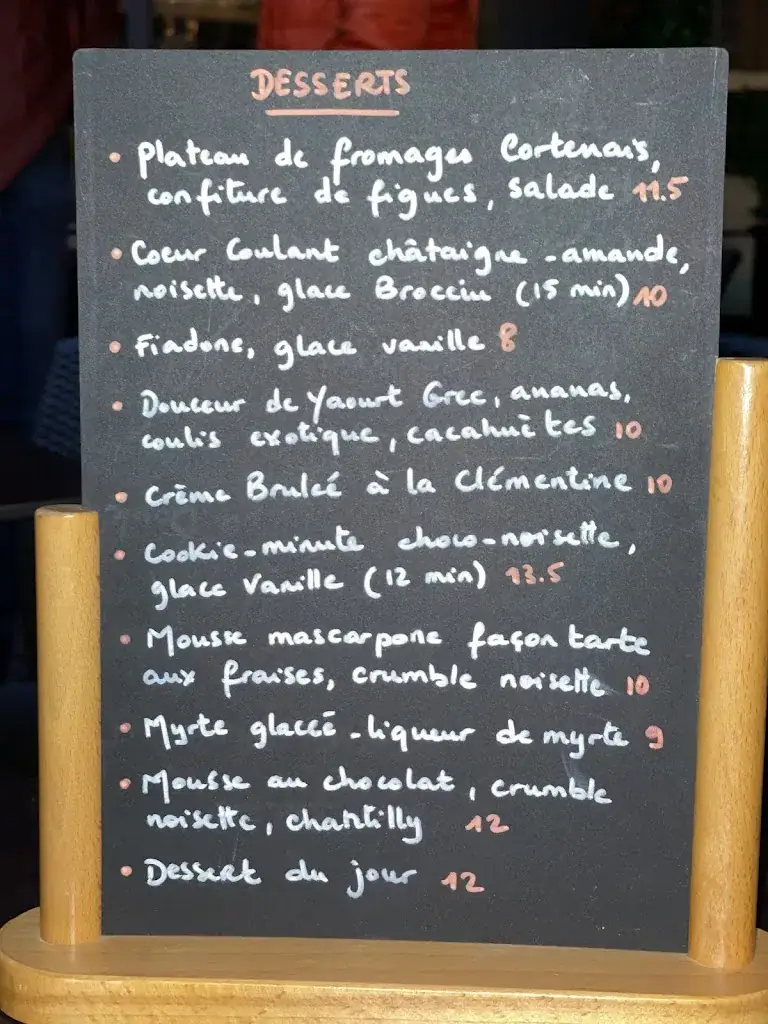 DESSERTS
• Plateau de fromages Cortenais,
confiture de figues, salade 11.5
• Coeur Coulant châtaigne - amande,
noisette, glace Brocciu (15 min) 10
• Fiadone, glace vanille 8
• Douceur de Yaourt Grec, ananas,
coulis exotique, cacahuètes 10
• Crème Brulée à la Clémentine 10
• Cookie-minute choco-noisette,
glace Vanille (12 min) 13.5
• Mousse mascarpone façon tarte
aux fraises, crumble noisette 10
• Myrte glacée - liqueur de myrte 9
• Mousse au chocolat, crumble
noisette, chantilly 12
• Dessert du jour 12